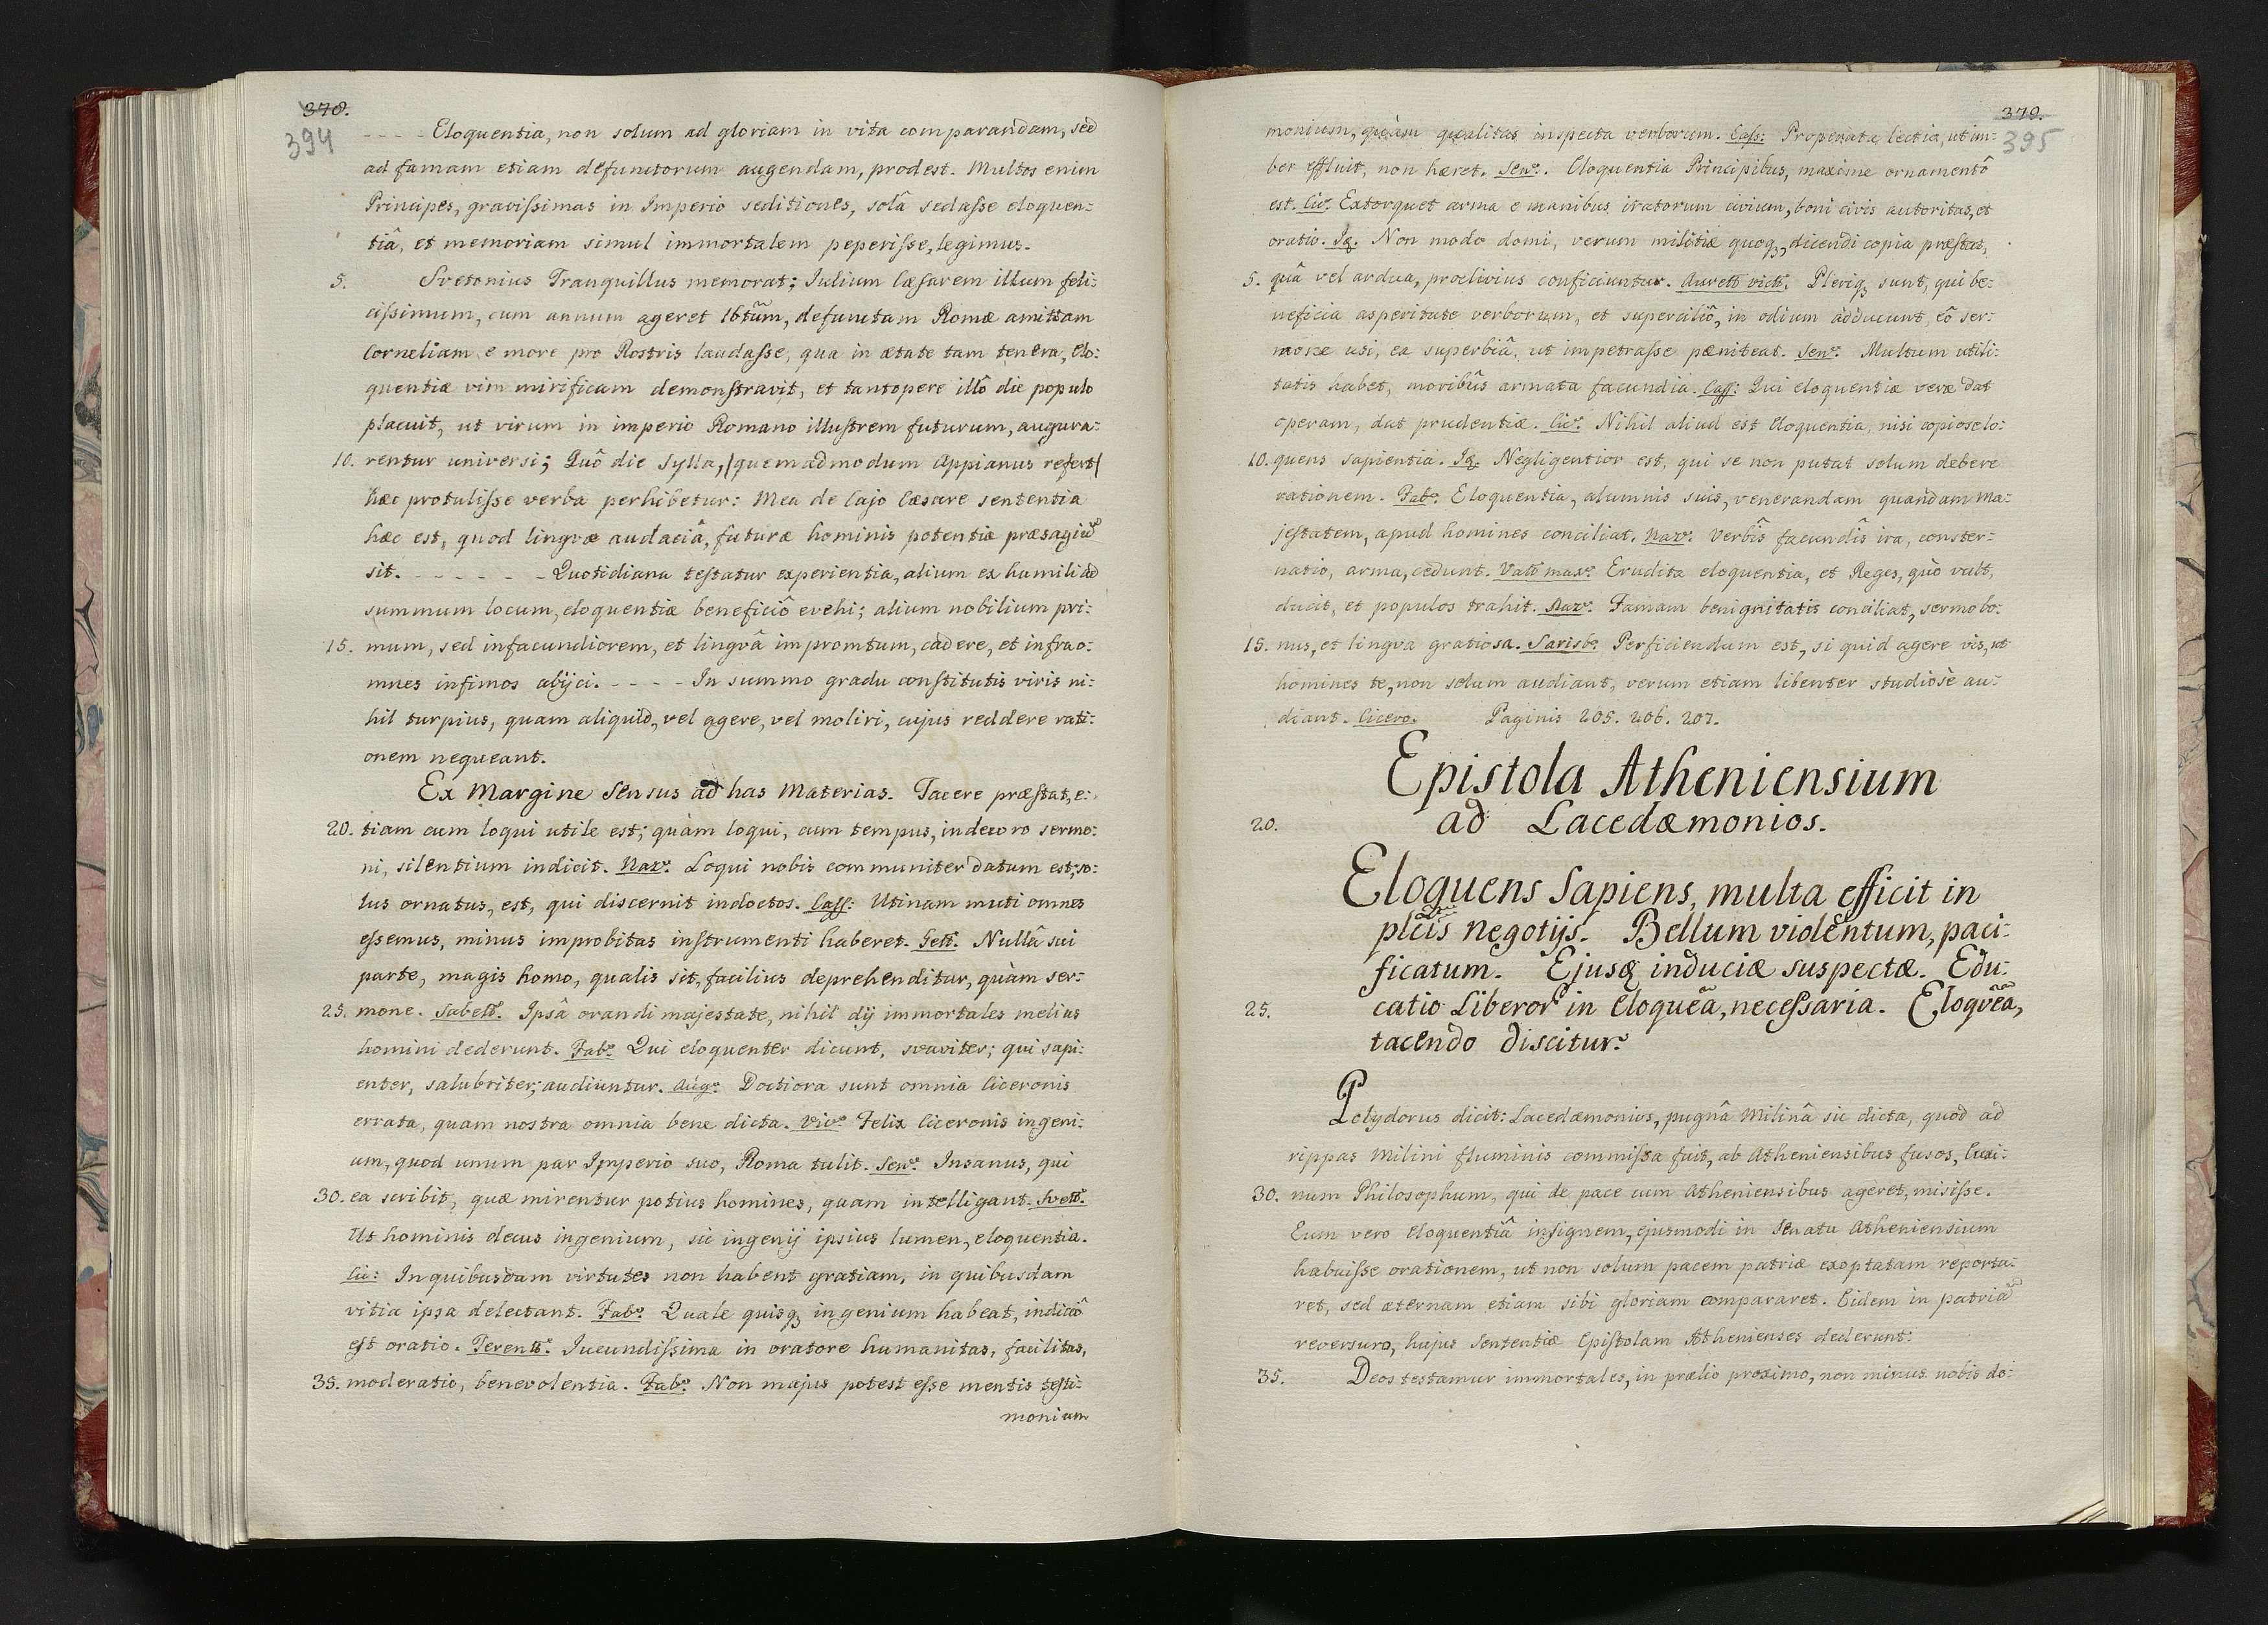 378.
394
- - - - Eloquentia, non solum ad gloriam in vita comparandam, sed
ad famam etiam defunctorum augendam, prodest. Multos enim
Principes, gravissimas in Imperio seditiones, solâ sedasse eloquen:
tiâ, et memoriam simul immortalem peperisse, legimus.
5. Svetonius Tranquillus memorat; Iulium Cæsarem illum feli:
cissimum, cum annum ageret 16tũm, defunctam Romæ amittam
Corneliam e more pro Rostris laudasse, qua in ætate tam tenera, Elo:
quentiæ vim mirificam demonstravit, et tantopere illô die populo
placuit, ut virum in imperio Romano illustrem futurum, augura:
10. rentur universi; Quô die Sylla, /quemadmodum Appianus refert/
hæc protulisse verba perhibetur: Mea de Cajo Cæsare sententia
hæc est, quod lingvæ audaciâ, futuræ hominis potentiæ præsagiũ
sit. - - - - - - - Quotidiana testatur experientia, alium ex humili ad
summum locum, eloquentiæ beneficiô evehi; alium nobilium pri:
15. mum, sed infacundiorem, et lingvâ impromtum, cadere, et infra o:
mnes infimos abijci. - - - - In summo gradu constitutis viris ni:
hil turpius, quam aliquid, vel agere, vel moliri, cujus reddere rati:
onem nequeant.
Ex Margine Sensus ad has Materias. Tacere præstat, e:
20. tiam cum loqui utile est; quàm loqui, cum tempus, indecoro sermo:
ni, silentium indicit. Naz: Loqui nobis communiter datum est; so:
lus ornatus, est, qui discernit indoctos. Cass: Utinam muti omnes
essemus, minus improbitas instrumenti haberet. Gell: Nullâ sui
parte, magis homo, qualis sit, facilius deprehenditur, quàm ser:
25. mone. Sabell: Ipsâ orandi majestate, nihil dij immortales melius
homini dederunt. Fab: Qui eloquenter dicunt, svaviter; qui sapi:
enter, salubriter; audiuntur. Aug: Doctiora sunt omnia Ciceronis
errata, quam nostra omnia bene dicta. Vic: Felix Ciceronis ingeni:
um, quod unum par Imperio suo, Roma tulit. Sen: Insanus, qui
30. ea scribit, quæ mirentur potius homines, quam intelligant. Svet:
Ut hominis decus ingenium, sic ingenij ipsius lumen, eloquentia.
Cic: In quibusdam virtutes non habent gratiam, in quibusdam
vitia ipsa delectant. Fab: Quale quisq; ingenium habeat, indiciô
est oratio. Terent: Jucundissima in oratore humanitas, facilitas,
35. moderatio, benevolentia. Fab: Non majus potest esse mentis testi:
monium
379.
395
monium, quàm qualitas inspecta verborum. Cass: Properata lectio, ut im:
ber effluit, non hæret. Sen: Eloquentia Principibus, maxime ornamentô
est. Cic: Extorquet arma e manibus iratorum civium, boni civis autoritas, et
oratio. Iq. Non modo domi, verum militiæ quoq; dicendi copia præstat,
5. quâ vel ardua, proclivius conficiuntur. Aurell vict: Pleriq; sunt, qui be:
neficia asperitate verborum, et superciliô, in odium adducunt, eô ser:
mone usi, ea superbiâ, ut impetrasse pæniteat. Sen: Multum utili:
tatis habet, moribûs armata facundia. Cass: Qui eloquentiæ veræ dat
operam, dat prudentiæ. Cic: Nihil aliud est Eloquentia, nisi copiose lo:
10. quens sapientia. Iq. Negligentior est, qui se non putat solum debere
rationem. Fab: Eloquentia, alumnis suis, venerandam quandam ma:
jestatem, apud homines conciliat. Naz: Verbîs facundîs ira, conster:
natio, arma, cedunt. Vall max: Erudita eloquentia, et Reges, quò vult,
ducit, et populos trahit. Naz: Famam benignitatis conciliat, sermo bo:
15. nus, et lingva gratiosa. Sarisb: Perficiendum est, si quid agere vis, ut
homines te, non solum audiant, verum etiam libenter studiosè au:
diant. Cicero. Paginis 205. 206. 207.
Epistola Atheniensium
20. ad Lacedæmonios.
Eloquens Sapiens, multa efficit in
plcis negotijs. Bellum violentum, paci:
ficatum. Ejusq induciæ suspectæ. Edu:
25. catio Liberor in Eloquẽa, necessaria. Eloqvẽa,
tacendo discitur.
Polydorus dicit: Lacedæmonios, pugnâ Milinâ sic dicta, quod ad
rippas Milini fluminis commissa fuit, ab Atheniensibus fusos, Euxi:
30. num Philosophum, qui de pace cum Atheniensibus ageret, misisse.
Eum vero Eloquentiâ insignem, ejusmodi in Senatu Atheniensium
habuisse orationem, ut non solum pacem patriæ exoptatam reporta:
ret, sed æternam etiam sibi gloriam compararet. Eidem in patriã
reversuro, hujus Sententiæ Epistolam Athenienses dederunt:
35. Deos testamur immortales, in prælio proximo, non minus nobis do: